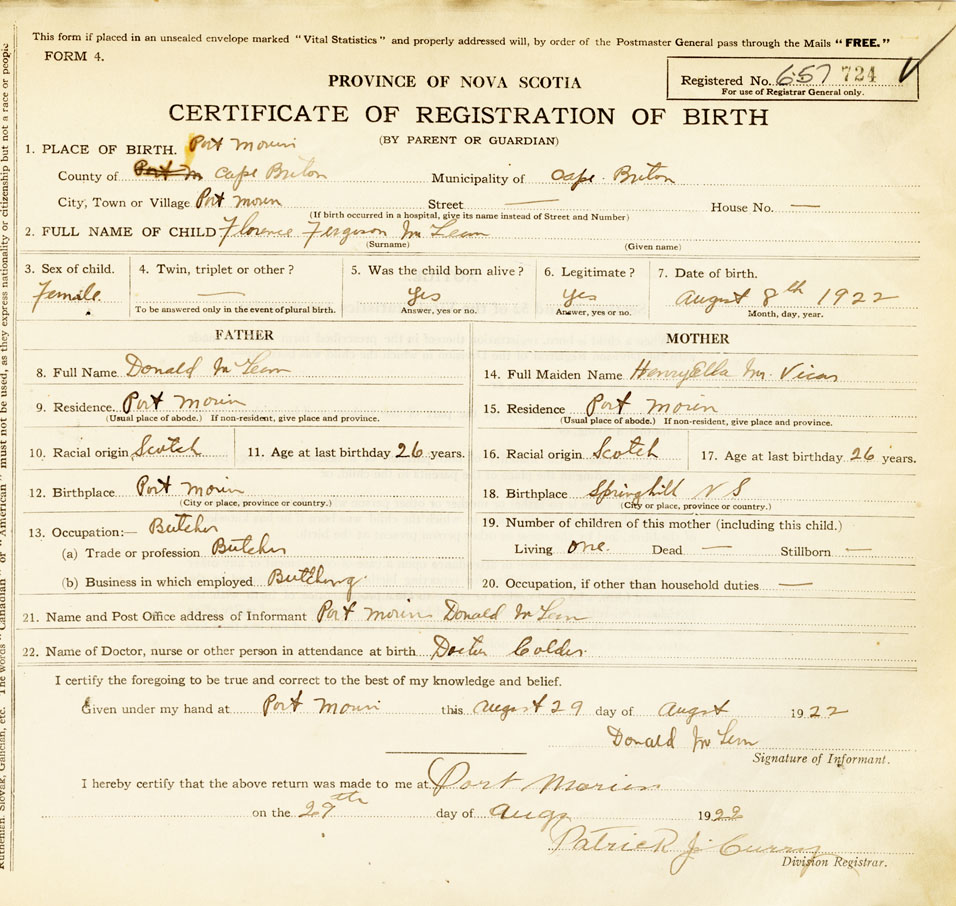 This form if placed in an unsealed envelope marked "Vital Statistics" and properly addressed will, by order of the Postmaster General pass through the Mails "FREE."
FORM 4.
Registered No. 657 724
For use of Registrar General only.
PROVINCE OF NOVA SCOTIA
CERTIFICATE OF REGISTRATION OF BIRTH
(BY PARENT OR GUARDIAN)
1. PLACE OF BIRTH. Port Morien
County of Port M Cape Briton Municipality of Cape Briton
City, Town or Village Port Morien Street — House No. —
(If birth occurred in a hospital, give its name instead of Street and Number)
2. FULL NAME OF CHILD Florence Ferguson McLean
(Surname) (Given name)
3. Sex of child. 4. Twin, triplet or other? 5. Was the child born alive? 6. Legitimate? 7. Date of birth.
Female — Yes Yes August 8th 1922
To be answered only in the event of plural birth. Answer, yes or no. Answer, yes or no. Month, day, year.
FATHER
8. Full Name Donald McLean
9. Residence. Port Morien
(Usual place of abode.) If non-resident, give place and province.
10. Racial origin Scotch 11. Age at last birthday 26 years.
12. Birthplace Port Morien
(City or place, province or country.)
13. Occupation:— Butcher
(a) Trade or profession Butcher
(b) Business in which employed Butchng
MOTHER
14. Full Maiden Name HenryElla Mc Vicar
15. Residence Port Morien
(Usual place of abode.) If non-resident, give place and province.
16. Racial origin Scotch 17. Age at last birthday 26 years.
18. Birthplace Springhill N S
(City or place, province or country.)
19. Number of children of this mother (including this child.)
Living one. Dead — Stillborn —
20. Occupation, if other than household duties —
21. Name and Post Office address of Informant Port Morien Donald McLean
22. Name of Doctor, nurse or other person in attendance at birth Doctor Calder
I certify the foregoing to be true and correct to the best of my knowledge and belief.
Given under my hand at Port Morien this August 29 day of August 1922
Donald McLean
Signature of Informant.
I hereby certify that the above return was made to me at Port Morien
on the 29th day of Aug 1922
Patrick J Curry
Division Registrar.
Ruthenian, Slovak, Galician, etc. The words "Canadian" or "American" must not be used, as they express nationality or citizenship but not a race or people